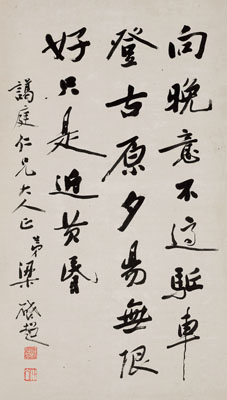 向晚意不適駈車
登古原夕陽無限
好只是近黄昏
藹庭仁兄大人正 弟梁啟超